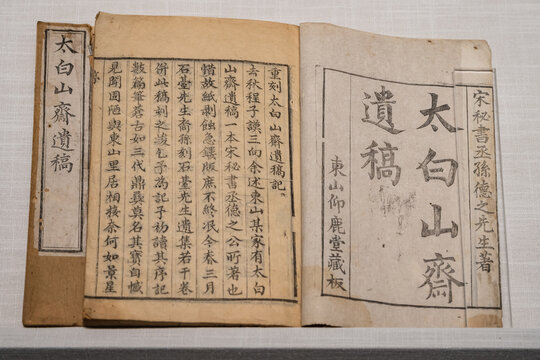 宋秘書丞孫德之先生著
太白山齋
遺稿
東山仰鹿堂藏板
重刻太白山齋遺稿記
去秋程子讃三向余述東山某家有太白
山齋遺稿一本宋秘書丞德之公所著也
惜故紙剝蝕急鋟版庶不終泯今春三月
石臺先生裔孫刻石臺先生遺集若干卷
併此稿刺之竣乞予為記子初讀其序記
數篇蒼古如三代鼎彞莫名其寶自憾
見聞固陋與東山里居相接奈何如景星
序
太白山齋遺稿